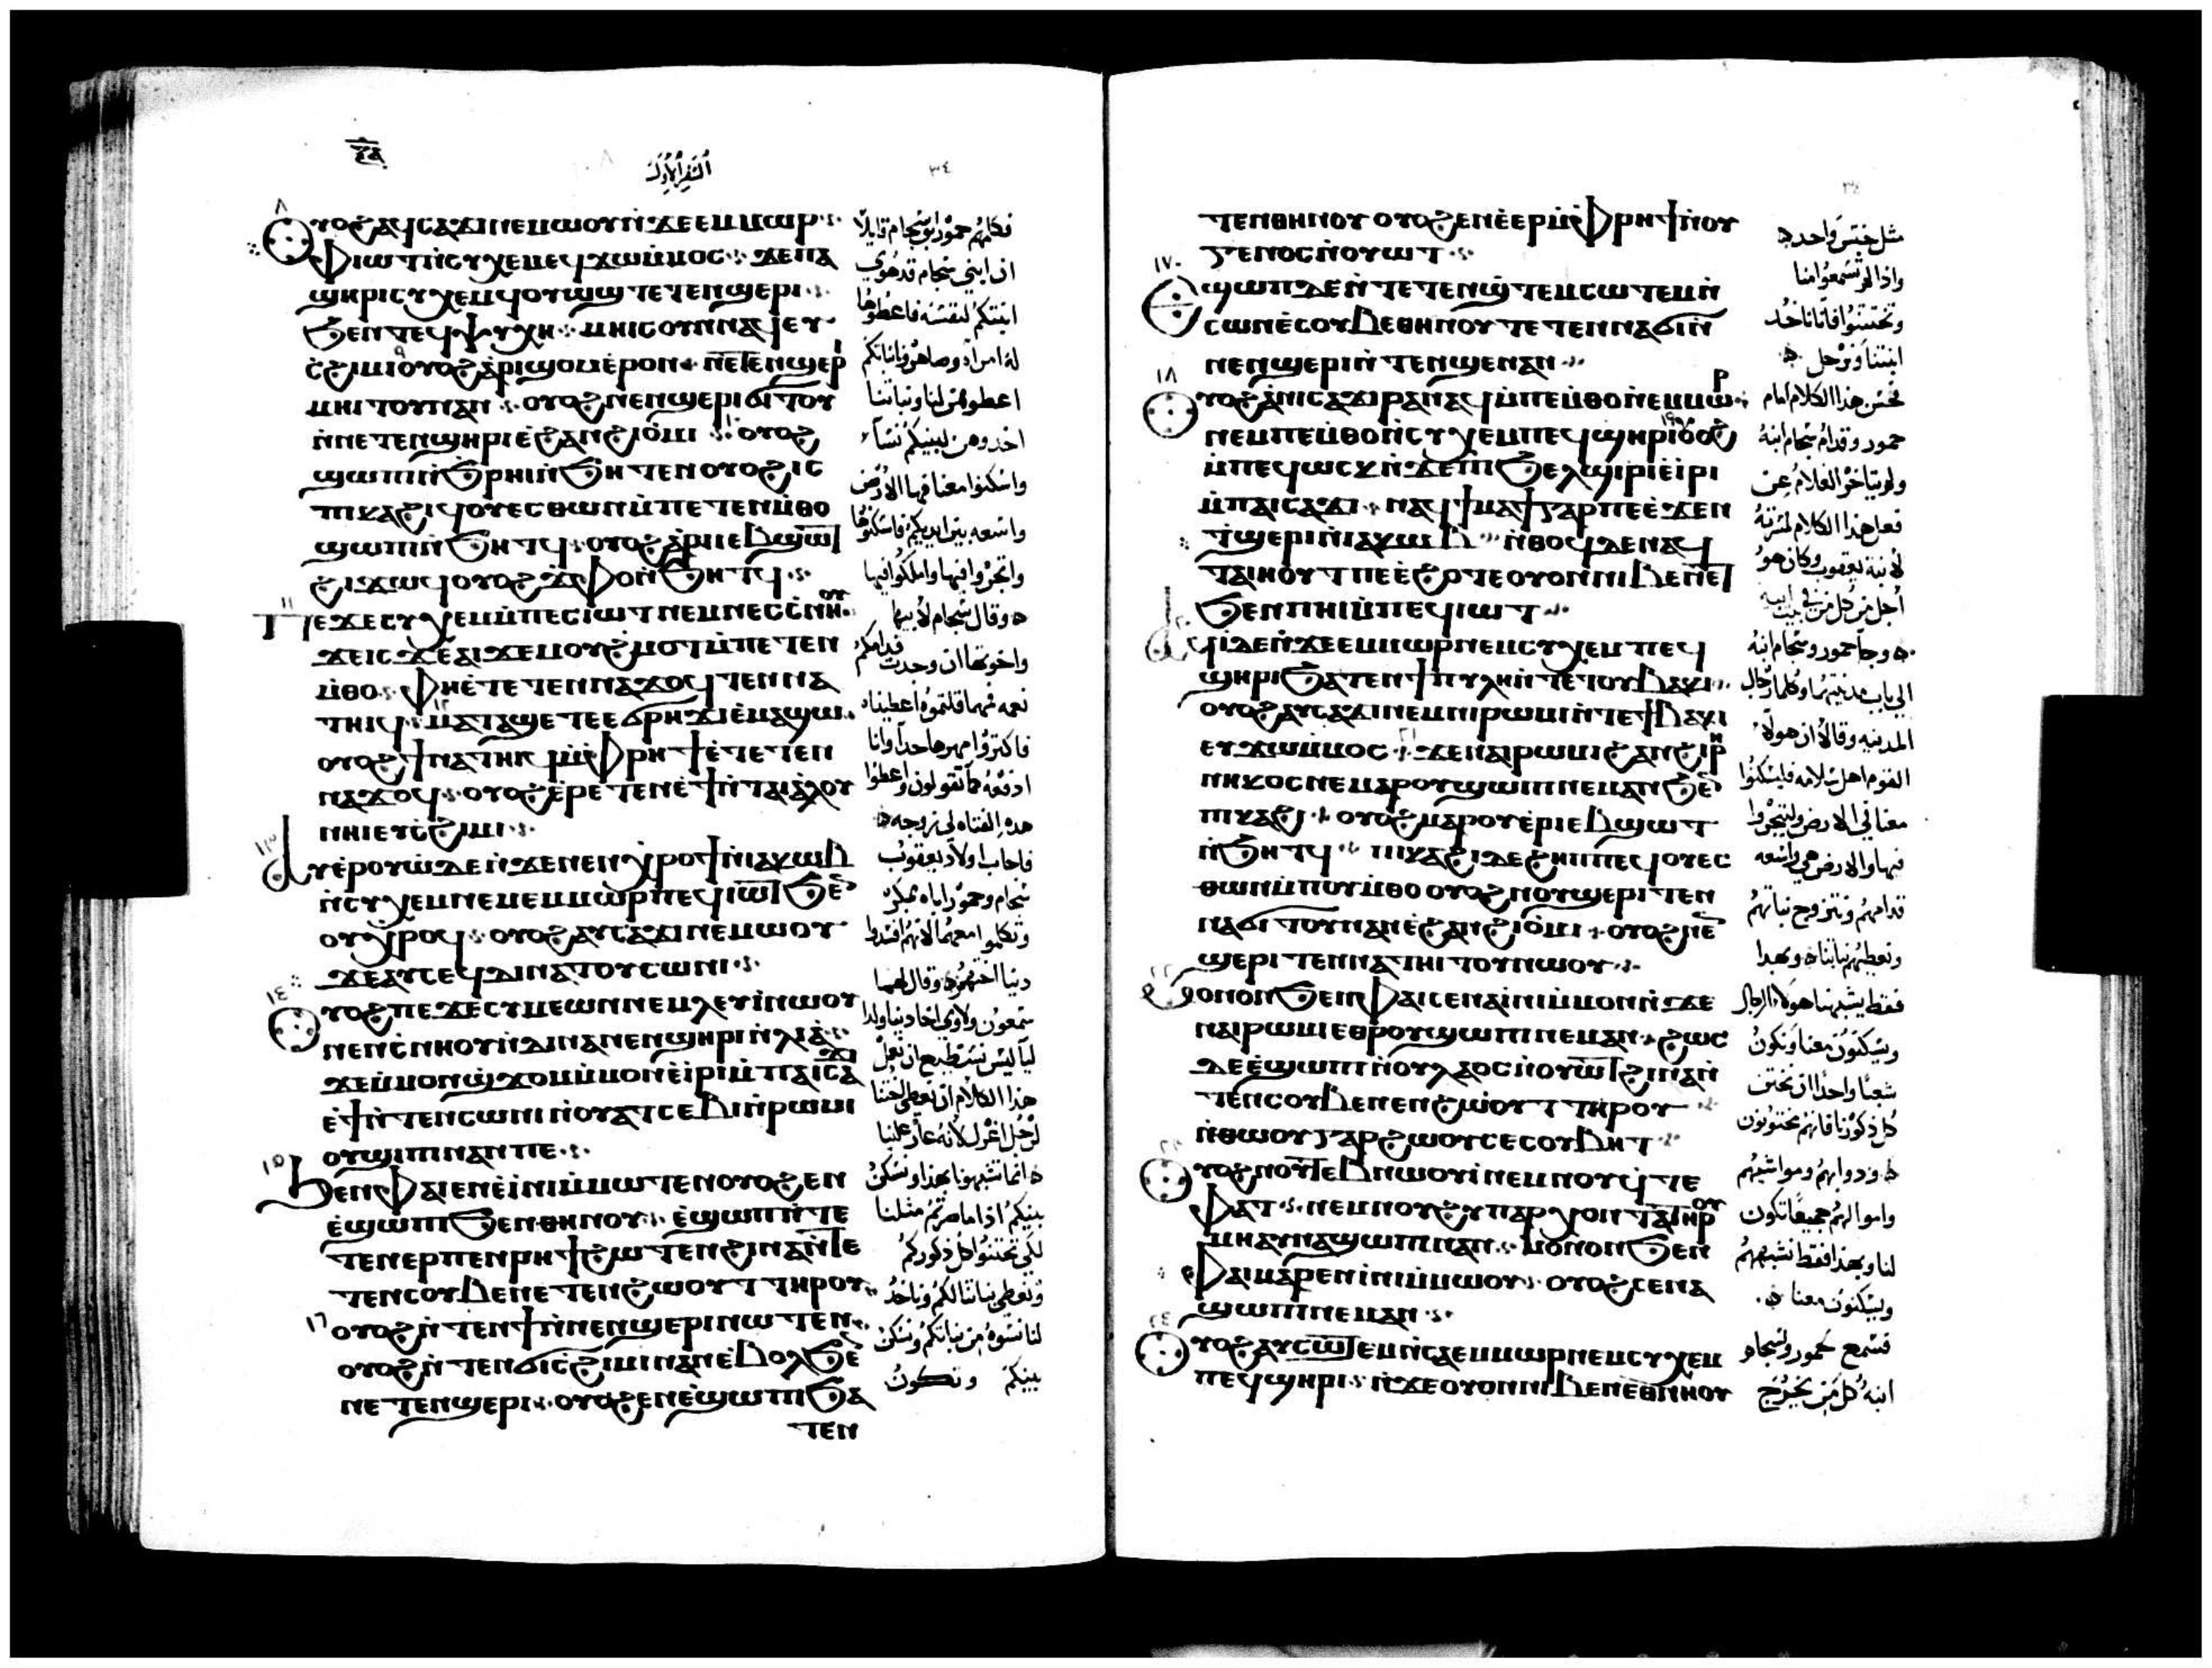 ⲝⲁ
السفر الاول
٣٤
٨ ⲟⲩⲟϩ ⲁϥⲥⲁϫⲓ ⲛⲉⲙⲱⲟⲩ ⲛ̇ϫⲉ ⲉⲙⲙⲱⲣ
ⲫⲓⲱⲧ ⲛ̇ⲥⲩⲭⲉⲙ ⲉϥϫⲱ ⲙ̇ⲙⲟⲥ ϫⲉ ⲡⲁ
ϣⲏⲣⲓ ⲥⲩⲭⲉⲙ ϥⲟⲩⲱϣ ⲧⲉⲧⲉⲛϣⲉⲣⲓ
ϧⲉⲛ ⲧⲉϥⲯⲩⲭⲏ ⲙⲏⲓⲥ ⲟⲩⲛ ⲛⲁϥ ⲉⲩ
ⲥ̇ϩⲓⲙⲓ ٩ ⲟⲩⲟϩ ⲁ̇ⲣⲓϣⲟⲙ ⲉ̇ⲣⲟⲛ ⲛⲉⲧⲉⲛϣⲉⲣⲓ
ⲙⲏⲓⲧⲟⲩ ⲛⲁⲛ ⲟⲩⲟϩ ⲛⲉⲛϣⲉⲣⲓ ϭⲓⲧⲟⲩ
ⲛ̇ⲛⲉⲧⲉⲛϣⲏⲣⲓ ⲉ̇ϩⲁⲛϩⲓⲟ̇ⲙⲓ ١٠ ⲟⲩⲟϩ
ϣⲱⲡⲓ ⲛ̇ϧⲣⲏⲓ ⲛ̇ϧⲏⲧⲉⲛ ⲟⲩⲟϩ ⲓⲥ
ⲡⲓⲕⲁϩⲓ ϥⲟⲩⲉⲥⲑⲱⲛ ⲙ̇ⲡⲉⲧⲉⲛⲙ̇ⲑⲟ
ϣⲱⲡⲓ ⲛ̇ϧⲏⲧϥ ⲟⲩⲟϩ ⲁ̇ⲣⲓⲓⲉⲃϣⲱⲧ
ϩⲓϫⲱϥ ⲟⲩⲟϩ ϫ̇ⲫⲟ ⲛ̇ϧⲏⲧϥ
١١ ⲡⲉϫⲉ ⲥⲩⲭⲉⲙ ⲙ̇ⲡⲉⲥⲓⲱⲧ ⲛⲉⲙ ⲛⲉⲥⲥ̇ⲛⲏⲟⲩ
ϫⲉ ⲓⲥϫⲉ ⲁⲓϫⲉⲙ ⲟⲩϩ̇ⲙⲟⲧ ⲙ̇ⲡⲉⲧⲉⲛ
ⲙ̇ⲑⲟ ⲫⲏⲉ̇ⲧⲉⲧⲉⲛⲛⲁϫⲟϥ ⲧⲉⲛⲛⲁ
ⲧⲏⲓϥ ١٢ ⲙⲁⲧⲁϣⲉ ⲧⲉⲥϭⲣⲏϫⲓ ⲉ̇ⲙⲁϣⲱ
ⲟⲩⲟϩ ϯⲛⲁⲧⲏⲓϥ ⲙ̇ⲫⲣⲏϯ ⲉ̇ⲧⲉⲧⲉⲛ
ⲛⲁϫⲟϥ ⲟⲩⲟϩ ⲉ̇ⲣⲉⲧⲉⲛⲉ̇ϯ ⲛ̇ⲧⲁⲓⲁ̇ⲗⲟⲩ
ⲛⲏⲓ ⲉⲩⲥ̇ϩⲓⲙⲓ
١٣ ⲁⲩⲉ̇ⲣⲟⲩⲱ̇ ⲇⲉ ⲛ̇ϫⲉ ⲛⲉⲛϣⲏⲣⲓ ⲛ̇ⲓⲁⲕⲱⲃ
ⲛ̇ⲥⲩⲭⲉⲙ ⲛⲉⲙ ⲉⲙⲙⲱⲣ ⲡⲉϥⲓⲱⲧ ϧⲉⲛ
ⲟⲩⲭⲣⲟϥ ⲟⲩⲟϩ ⲁⲩⲥⲁϫⲓ ⲛⲉⲙⲱⲟⲩ
ϫⲉ ⲁⲩⲥⲉϥ ⲇⲓⲛⲁ ⲧⲟⲩⲥⲱⲛⲓ
١٤ ⲟⲩⲟϩ ⲡⲉϫⲉ ⲥⲩⲙⲉⲱⲛ ⲛⲉⲙ ⲗⲉⲩⲓ̇ ⲛⲱⲟⲩ
ⲛⲉⲛⲥ̇ⲛⲏⲟⲩ ⲛ̇ⲇⲓⲛⲁ ⲛⲉⲛϣⲏⲣⲓ ⲛ̇ⲗⲓⲁ̇
ϫⲉ ⲙ̇ⲙⲟⲛϣϫⲟⲙ ⲙ̇ⲙⲟⲛ ⲉ̇ⲓⲣⲓ ⲙ̇ⲡⲁⲓⲥⲁϫⲓ
ⲉ̇ϯ ⲛ̇ⲧⲉⲛⲥⲱⲛⲓ ⲛ̇ⲟⲩⲁⲧⲥⲉⲃⲓ ⲛ̇ⲣⲱⲙⲓ
ⲟⲩϣⲓⲡⲓ ⲛⲁⲛ ⲡⲉ
١٥ ϧⲉⲛ ⲫⲁⲓ ⲉⲛⲉ̇ⲓⲛⲓ ⲙ̇ⲙⲱⲧⲉⲛ ⲟⲩⲟϩ ⲉⲛ
ⲉ̇ϣⲱⲡⲓ ϧⲉⲛ ⲑⲏⲛⲟⲩ ⲉ̇ϣⲱⲡ ⲛ̇ⲧⲉ
ⲧⲉⲛⲉⲣ ⲡⲉⲛⲣⲏϯ ϩⲱⲧⲉⲛ ϩⲓⲛⲁ ⲛ̇ⲧⲉ
ⲧⲉⲛⲥⲟⲩⲃⲉ ⲛⲉⲧⲉⲛϩⲱⲟⲩⲧ ⲧⲏⲣⲟⲩ
١٦ ⲟⲩⲟϩ ⲛ̇ⲧⲉⲛϯ ⲛ̇ⲛⲉⲛϣⲉⲣⲓ ⲛⲱⲧⲉⲛ
ⲟⲩⲟϩ ⲛ̇ⲧⲉⲛϭⲓⲥ̇ϩⲓⲙⲓ ⲛⲁⲛ ⲉ̇ⲃⲟⲗ ϧⲉⲛ
ⲛⲉⲧⲉⲛϣⲉⲣⲓ ⲟⲩⲟϩ ⲉⲛⲉ̇ϣⲱⲡⲓ ϧⲁ
ⲧⲉⲛ
فكلمهم حمور ابو سخام قايلا
ان ابني سخام قد هوي
ابنتكم لنفسه فاعطوها
له امراة وصاهرونا بناتكم
اعطوهن لنا وبناتنا
خدوهن لبنيكم نساء
واسكنوا معنا فيها الارض
واسعه بين ايديكم فاسكنوها
واتجروا فيها واملكوا فيها
وقال سخام لابيها
واخوتها ان وجدت قدامكم
نعمه فمهما قلتموه اعطيناه
فاكتروا مهرها جدا وانا
ادفعه كما تقولون واعطوا
هذه الفتاه لي زوجه
فاجاب اولاد يعقوب
سخام وحمور اباه بمكر
وتكلموا معهما لانهم افسدوا
دينا اختهم وقال لهما
سمعون ولاوي اخا دينا ولدا
ليا ليس نستطيع ان نعمل
هذا الكلام ان نعطي اختنا
لرجل اغرل لانه عار علينا
انما تشبهونا بهذا ونسكن
بينكم اذا ما صرتم مثلنا
لكي تختتنوا كل ذكوركم
ونعطي بناتنا لكم وناخذ
لنا نسوة من بناتكم ونسكن
بينكم ونكون
ⲧⲉⲛ ⲑⲏⲛⲟⲩ ⲟⲩⲟϩ ⲉⲛⲉ̇ⲉⲣ ⲙ̇ⲫⲣⲏϯ ⲛ̇ⲟⲩ
ⲅⲉⲛⲟⲥ ⲛ̇ⲟⲩⲱⲧ
١٧ ⲉϣⲱⲡ ⲇⲉ ⲛ̇ⲧⲉⲧⲉⲛϣ̇ⲧⲉⲙⲥⲱⲧⲉⲙ ⲛ̇
ⲥⲱⲛ ⲉ̇ⲥⲟⲩⲃⲉ ⲑⲏⲛⲟⲩ ⲧⲉⲧⲉⲛⲛⲁϭⲓ ⲛ̇
ⲛⲉⲛϣⲉⲣⲓ ⲛ̇ⲧⲉⲛϣⲉⲛⲁⲛ
١٨ ⲟⲩⲟϩ ⲁ̇ⲛⲓⲥⲁϫⲓ ⲣⲁⲛⲁϥ ⲙ̇ⲡⲉⲙ̇ⲑⲟ ⲛ̇ⲉⲙⲙⲱⲣ
ⲛⲉⲙ ⲡⲉⲙ̇ⲑⲟ ⲛ̇ⲥⲩⲭⲉⲙ ⲡⲉϥϣⲏⲣⲓ ١٩ ⲟⲩⲟϩ
ⲙ̇ⲡⲉϥⲱⲥⲕ ⲛ̇ϫⲉ ⲡⲓϧⲉⲗϣⲓⲣⲓ ⲉ̇ⲓⲣⲓ
ⲙ̇ⲡⲁⲓⲥⲁϫⲓ ⲛⲁϥϯⲙⲁϯ ⲅⲁⲣ ⲡⲉ ⲉ̇ϫⲉⲛ
ⲧ̇ϣⲉⲣⲓ ⲛ̇ⲓⲁⲕⲱⲃ ⲛ̇ⲑⲟϥ ⲇⲉ ⲛⲁϥ
ⲧⲁⲓⲏⲟⲩⲧ ⲡⲉ ⲉ̇ϩⲟⲧⲉ ⲟⲩⲟⲛ ⲛⲓⲃⲉⲛ ⲉⲧ
ϧⲉⲛ ⲡⲏⲓ ⲙ̇ⲡⲉϥⲓⲱⲧ
٢٠ ⲁϥⲓ̇ ⲇⲉ ⲛ̇ϫⲉ ⲉⲙⲙⲱⲣ ⲛⲉⲙ ⲥⲩⲭⲉⲙ ⲡⲉϥ
ϣⲏⲣⲓ ϧⲁⲧⲉⲛ ϯⲡⲩⲗⲏ ⲛ̇ⲧⲉ ⲧⲟⲩⲃⲁⲕⲓ
ⲟⲩⲟϩ ⲁⲩⲥⲁϫⲓ ⲛⲉⲙ ⲛⲓⲣⲱⲙⲓ ⲛ̇ⲧⲉ ϯⲃⲁⲕⲓ
ⲉⲩϫⲱ ⲙ̇ⲙⲟⲥ ٢١ ϫⲉ ⲛⲁⲓⲣⲱⲙⲓ ϩⲁⲛϩⲓⲣⲏ
ⲛⲓⲕⲟⲥ ⲛⲉ ⲙⲁⲣⲟⲩϣⲱⲡⲓ ⲛⲉⲙⲁⲛ ϧⲉⲛ
ⲡⲓⲕⲁϩⲓ ⲟⲩⲟϩ ⲙⲁⲣⲟⲩⲉ̇ⲣⲓⲉⲃϣⲱⲧ
ⲛ̇ϧⲏⲧϥ ⲡⲓⲕⲁϩⲓ ⲇⲉ ϩⲏⲡⲡⲉ ϥⲟⲩⲉⲥ
ⲑⲱⲛ ⲙ̇ⲡⲟⲩⲙ̇ⲑⲟ ⲟⲩⲟϩ ⲛⲟⲩϣⲉⲣⲓ ⲧⲉⲛ
ⲛⲁϭⲓⲧⲟⲩ ⲛⲁⲛ ⲉ̇ϩⲁⲛϩⲓⲟ̇ⲙⲓ ⲟⲩⲟϩ ⲛⲉⲛ
ϣⲉⲣⲓ ⲧⲉⲛⲛⲁⲧⲏⲓⲧⲟⲩ ⲛⲱⲟⲩ
٢٢ ⲙⲟⲛⲟⲛ ϧⲉⲛ ⲫⲁⲓ ⲥⲉⲛⲁⲓ̇ⲛⲓ ⲙ̇ⲙⲟⲛ ⲛ̇ϫⲉ
ⲛⲁⲓⲣⲱⲙⲓ ⲉⲑⲣⲟⲩϣⲱⲡⲓ ⲛⲉⲙⲁⲛ ϩⲱⲥ
ⲇⲉ ⲉ̇ϣⲱⲡⲓ ⲛ̇ⲟⲩⲗⲁⲟⲥ ⲛ̇ⲟⲩⲱⲧ ϩⲓⲛⲁ ⲛ̇
ⲧⲉⲛⲥⲟⲩⲃⲉ ⲛⲉⲛϩⲱⲟⲩⲧ ⲧⲏⲣⲟⲩ
ⲛ̇ⲑⲱⲟⲩ ⲅⲁⲣ ϩⲱⲟⲩ ⲥⲉⲥⲟⲩⲃⲏⲧ
٢٣ ⲟⲩⲟϩ ⲛⲟⲩⲧⲉⲃⲛⲱⲟⲩⲓ ⲛⲉⲙ ⲛⲟⲩϥⲧⲉ
ⲫⲁⲧ ⲛⲉⲙ ⲛⲟⲩϩⲩⲡⲁⲣⲭⲟⲛⲧⲁ ⲧⲏⲣⲟⲩ
ⲙⲏ ⲁⲩⲛⲁϣⲱⲡⲓ ⲛⲁⲛ ⲙⲟⲛⲟⲛ ϧⲉⲛ
ⲫⲁⲓ ⲙⲁⲣⲉⲛⲓ̇ⲛⲓ ⲙ̇ⲙⲱⲟⲩ ⲟⲩⲟϩ ⲥⲉⲛⲁ
ϣⲱⲡⲓ ⲛⲉⲙⲁⲛ
٢٤ ⲟⲩⲟϩ ⲁⲩⲥⲱⲧⲉⲙ ⲛ̇ⲥⲁ ⲉⲙⲙⲱⲣ ⲛⲉⲙ ⲥⲩⲭⲉⲙ
ⲡⲉϥϣⲏⲣⲓ ⲛ̇ϫⲉ ⲟⲩⲟⲛ ⲛⲓⲃⲉⲛ ⲉⲑⲛⲏⲟⲩ
مثل جنس واحد
واذا لم تسمعوا منا
وتختتنوا فاننا ناخد
ابنتنا ونرحل
فحسن هذا الكلام امام
حمور وقدام سخام ابنه
ولم يتاخر الغلام عن
فعل هذا الكلام لمسرته
لابنة يعقوب وكان هو
اجل من كل من في بيت ابيه
وجا حمور وسخام ابنه
الي باب مدينتهما وكلما رجال
المدينه وقالا ان هولا
القوم اهل سلامه فليسكنوا
معنا في الارض وليتجروا
فيها والارض هي واسعه
قدامهم ونتزوج بناتهم
ونعطيهم بناتنا وبهدا
فقط يشبهنا هولاء الرجال
ويسكنون معنا ونكون
شعبا واحدا ان نختتن
كل ذكورنا فانهم مختتنون
ودوابهم ومواشيهم
واموالهم جميعا تكون
لنا وبهذا فقط نشبههم
ويسكنون معنا
فسمع لحمور ولسخام
ابنه كل من يخرج